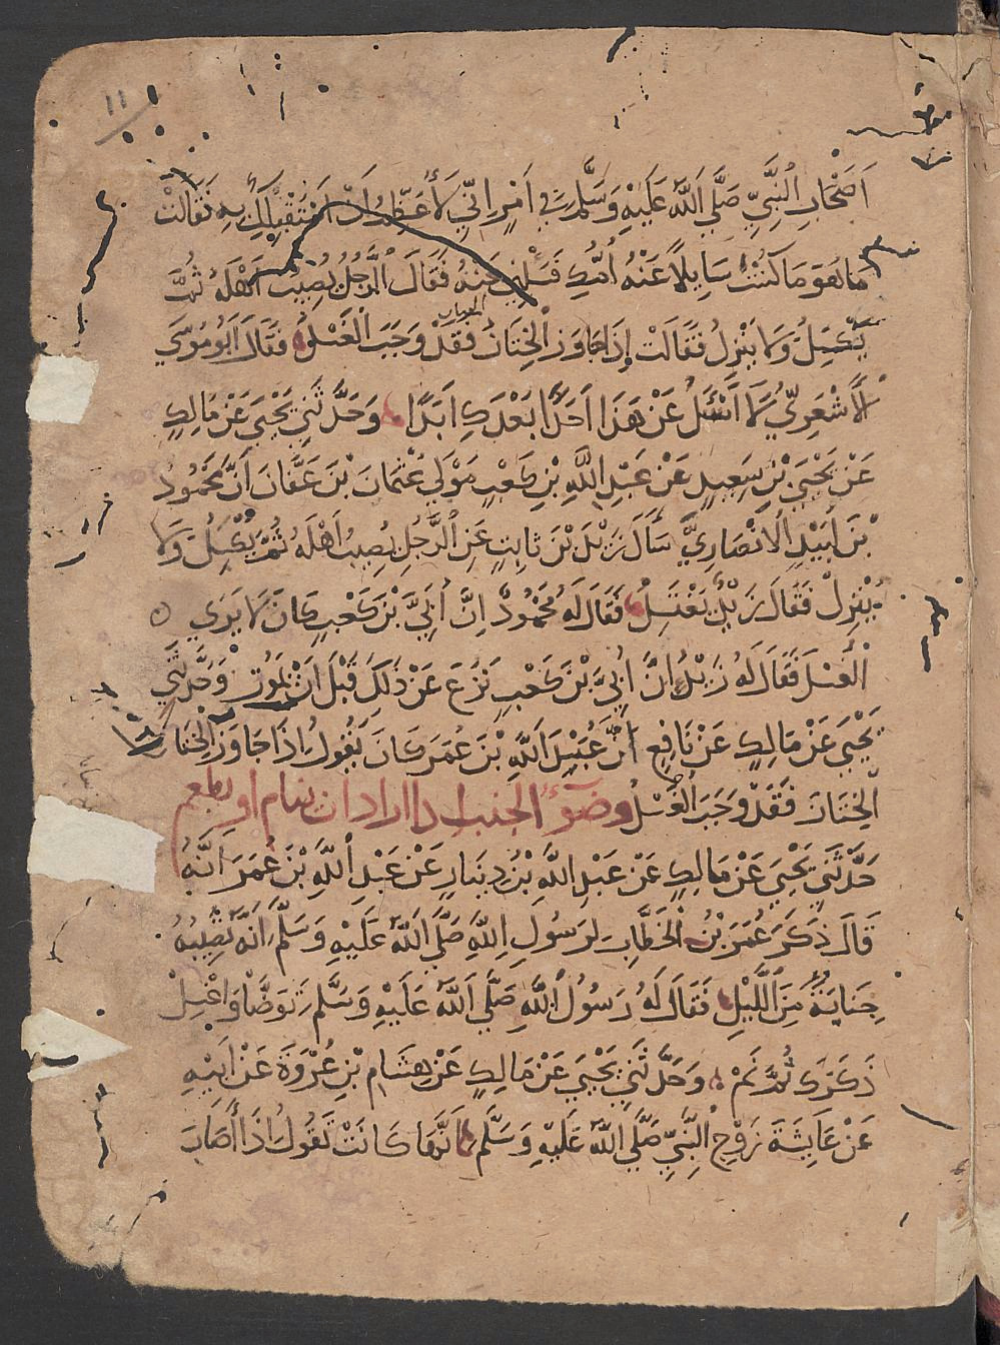 ١١
اَصْحَابِ النَّبِيِّ صَلَّي اَللَّهُ عَلَيْهِ وَسَلَّمَ فِي اَمْرٍ اِنِّي لَأُعَظِّمُ اَنْ اَسْتَقْبِلَكِ بِهِ فَقَالَتْ
مَا هُوَ مَا كُنْتَ سَايِلًا عَنْهُ اُمَّكَ فَسَلْنِي عَنْهُ فَقَالَ الرَّجُلُ يُصِيبُ اَهْلَهُ ثُمَّ
يُكْسِلُ وَلَا يُنْزِلُ فَقَالَتْ إِذَا جَاوَزَ الْخِتَانُ الْخِتَانَ فَقَدْ وَجَبَ الْغُسْلُ فَقَالَ اَبُو مُوسَي
الْاَشْعَرِيُّ لَا اَسْئَلُ عَنْ هَذَا اَحَدًا بَعْدَكِ اَبَدًا وَحَدَّثَنِي يَحْيَي عَنْ مَالِكٍ
عَنْ يَحْيَي بْنِ سَعِيدٍ عَنْ عَبْدِ اللَّهِ بْنِ كَعْبٍ مَوْلَي عُثْمَانَ بْنَ عَفَّانَ اَنَّ مَحْمُودَ
بْنَ لَبِيْدٍ الْاَنْصَارِيَّ سَأَلَ زَيْدَ بْنَ ثَابِتٍ عَنِ الرَّجُلِ يُصِيبُ اَهْلَهُ ثُمَّ يُكْسِلُ وَلَا
يُنْزِلْ فَقَالَ زَيْدٌ يَغْتَسِلُ فَقَالَ لَهُ مَحْمُودٌ اِنَّ اُبَيَّ بْنَ كَعْبٍ كَانَ لَا يَرَي
الْغُسْلَ فَقَالَ لَهُ زَيْدٌ اِنَّ اُبَيَّ بْنَ كَعْبٍ نَزَعَ عَنْ ذَلِكَ قَبْلَ اَنْ يَمُوتَ وَحَدَّثَنِي
يَحْيَي عَنْ مَالِكٍ عَنْ نَافِعٍ اَنَّ عَبْدَ اللَّهِ بْنَ عُمَرَ كَانَ يَقُولُ اِذَا جَاوَزَ الْخِتَانُ
الْخِتَانَ فَقَدْ وَجَبَ الْغُسْلُ وضوءُ الجنب اذا اراد ان ينام او يطعم
حَدَّثَنِي يَحْيَي عَنْ مَالِكٍ عَنْ عَبْدِ اللَّهِ بْنِ دِينَارٍ عَنْ عَبْدِ اللَّهِ بْنَ عُمَرَ اَنَّهُ
قَالَ ذَكَرَ عُمَرَ بْنُ الْخَطَّابِ لِرَسُولِ اللَّهِ صَلَّي اَللَّهُ عَلَيْهِ وَسَلَّمَ اَنَّهُ تُصِيبُهُ
جَنَابَةٌ مِنَ اللَّيْلِ فَقَالَ لَهُ رَسُولُ اللَّهِ صَلَّي اَللَّهُ عَلَيْهِ وَسَلَّمَ تَوَضَّأْ وَاغْسِلْ
ذَكَرَكَ ثُمَّ نَمْ وَحَدَّثَنِي يَحْيَي عَنْ مَالِكٍ عَنْ هِشَامِ بْنِ عُرْوَةَ عَنْ اَبِيْهِ
عَنْ عَايِشَةَ زَوْجِ النَّبِيِّ صَلَّي اللَّهُ عَلَيْهِ وَسَلَّمَ اَنَّهَا كَانَتْ تَقُولُ اِذَا أَصَابَ